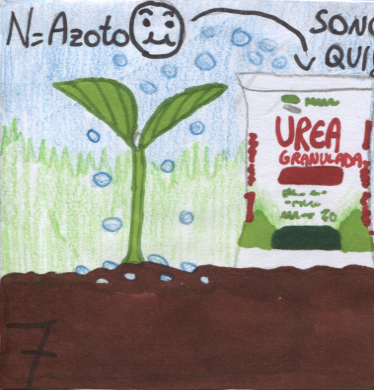 N=Azoto
SONO
QUI
UREA
GRANULADA
7